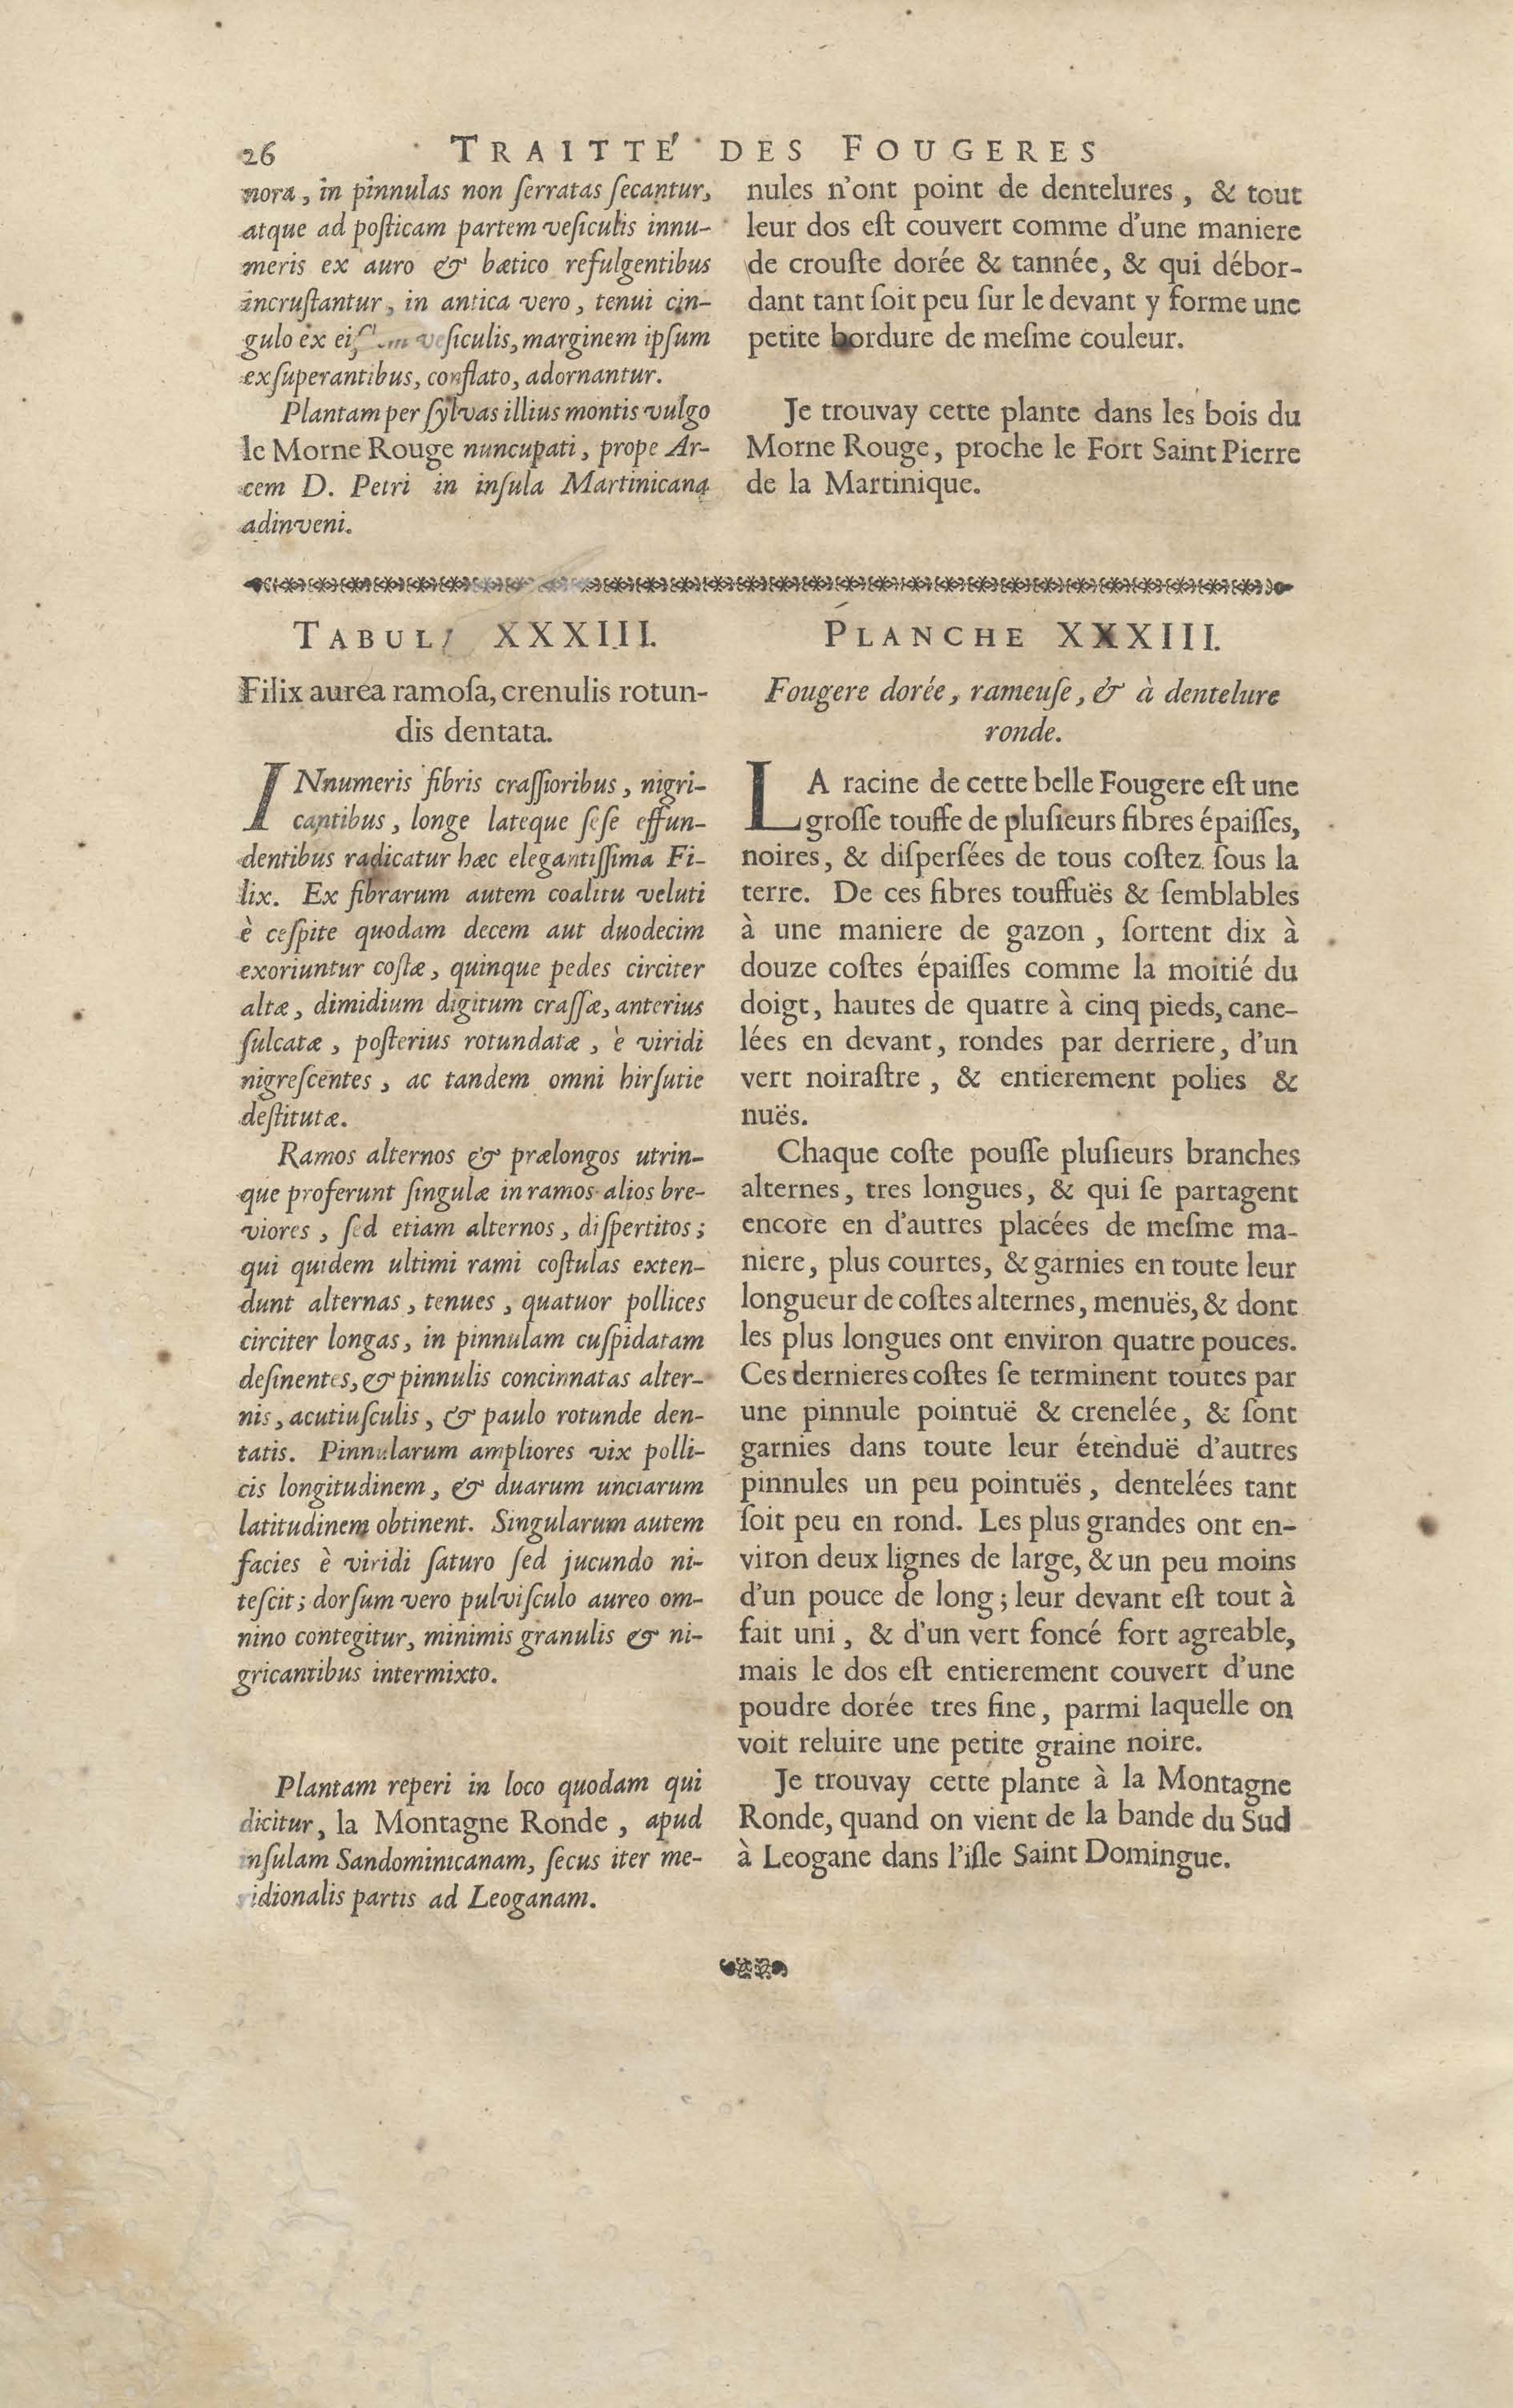 26 TRAITTÉ DES FOUGERES
nora, in pinnulas non ſerratas ſecantur,
atque ad poſticam partem veſiculis innu-
meris ex auro & bætico refulgentibus
incruſtantur, in antica vero, tenui cin-
gulo ex veſiculis, marginem ipſum
exſuperantibus, conflato, adornantur.
Plantam per ſylvas illius montis vulgo
le Morne Rouge nuncupati, prope Ar-
cem D. Petri in inſula Martinicana
adinveni.
nules n'ont point de dentelures, & tout
leur dos eſt couvert comme d'une maniere
de crouſte dorée & tannée, & qui débor-
dant tant ſoit peu ſur le devant y forme une
petite bordure de meſme couleur.
Je trouvay cette plante dans les bois du
Morne Rouge, proche le Fort Saint Pierre
de la Martinique.
TABUL XXXIII.
Filix aurea ramoſa, crenulis rotun-
dis dentata.
INnumeris fibris craſſioribus, nigri-
cantibus, longe lateque ſeſe effun-
dentibus radicatur hæc elegantiſſima Fi-
lix. Ex fibrarum autem coalitu veluti
è ceſpite quodam decem aut duodecim
exoriuntur coſtæ, quinque pedes circiter
altæ, dimidium digitum craſſæ, anterius
ſulcatæ, poſterius rotundatæ, è viridi
nigreſcentes, ac tandem omni hirſutie
deſtitutæ.
Ramos alternos & prælongos utrin-
que proferunt ſingulæ in ramos alios bre-
viores, ſed etiam alternos, diſpertitos;
qui quidem ultimi rami coſtulas exten-
dunt alternas, tenues, quatuor pollices
circiter longas, in pinnulam cuſpidatam
deſinentes, & pinnulis concinnatas alter-
nis, acutiuſculis, & paulo rotunde den-
tatis. Pinnularum ampliores vix polli-
cis longitudinem, & duarum unciarum
latitudinem obtinent. Singularum autem
facies è viridi ſaturo ſed jucundo ni-
teſcit; dorſum vero pulviſculo aureo om-
nino contegitur, minimis granulis & ni-
gricantibus intermixto.
Plantam reperi in loco quodam qui
dicitur, la Montagne Ronde, apud
inſulam Sandominicanam, ſecus iter me-
ridionalis partis ad Leoganam.
PLANCHE XXXIII.
Fougere dorée, rameuſe, & à dentelure
ronde.
LA racine de cette belle Fougere eſt une
groſſe touffe de pluſieurs fibres épaiſſes,
noires, & diſperſées de tous coſtez ſous la
terre. De ces fibres touffuës & ſemblables
à une maniere de gazon, ſortent dix à
douze coſtes épaiſſes comme la moitié du
doigt, hautes de quatre à cinq pieds, cane-
lées en devant, rondes par derriere, d'un
vert noiraſtre, & entierement polies &
nuës.
Chaque coſte pouſſe pluſieurs branches
alternes, tres longues, & qui ſe partagent
encore en d'autres placées de meſme ma-
niere, plus courtes, & garnies en toute leur
longueur de coſtes alternes, menuës, & dont
les plus longues ont environ quatre pouces.
Ces dernieres coſtes ſe terminent toutes par
une pinnule pointuë & crenelée, & ſont
garnies dans toute leur étenduë d'autres
pinnules un peu pointuës, dentelées tant
ſoit peu en rond. Les plus grandes ont en-
viron deux lignes de large, & un peu moins
d'un pouce de long; leur devant eſt tout à
fait uni, & d'un vert foncé fort agreable,
mais le dos eſt entierement couvert d'une
poudre dorée tres fine, parmi laquelle on
voit reluire une petite graine noire.
Je trouvay cette plante à la Montagne
Ronde, quand on vient de la bande du Sud
à Leogane dans l'iſle Saint Domingue.